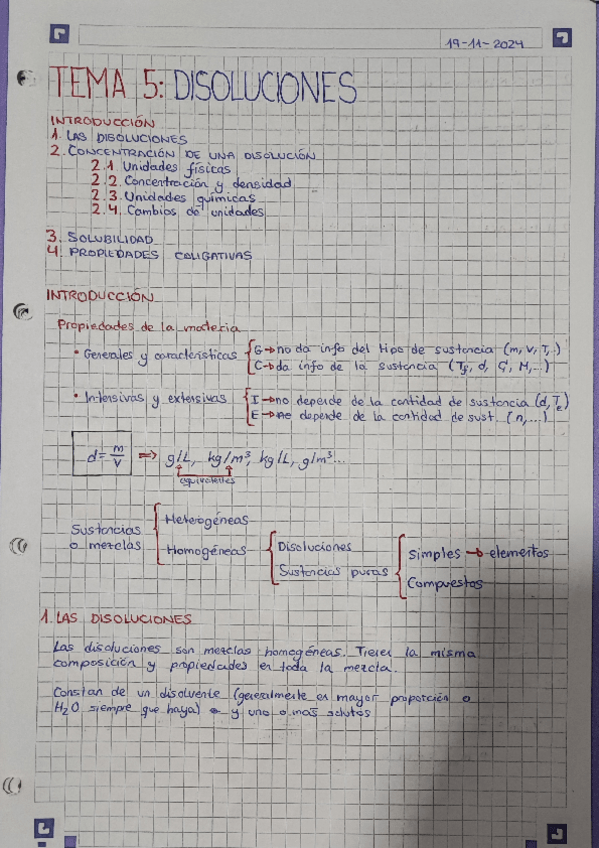 19-11-2024
TEMA 5: DISOLUCIONES
INTRODUCCIÓN
1. LAS DISOLUCIONES
2. CONCENTRACIÓN DE UNA DISOLUCIÓN
2.1. Unidades físicas
2.2. Concentración y densidad
2.3. Unidades químicas
2.4. Cambios de unidades
3. SOLUBILIDAD
4. PROPIEDADES COLIGATIVAS
INTRODUCCIÓN
Propiedades de la materia
• Generales y características { G→no da info del tipo de sustancia (m, V, T,..)
C→da info de la sustancia
• Intensivas y extensivas { I→no depende de la cantidad de sustancia
E→ depende de la cantidad de sust (n,...)
d = m/V ⇒ g/L, kg/m³, kg/L, g/m³...
equivalentes
Sustancias o mezclas { Heterogéneas
Homogéneas { Disoluciones
Sustancias puras { Simples → elementos
Compuestos
1. LAS DISOLUCIONES
Las disoluciones son mezclas homogéneas. Tienen la misma
composición y propiedades en toda la mezcla.
Constan de un disolvente (generalmente en mayor proporción o
H₂O siempre que haya) y uno o más solutos